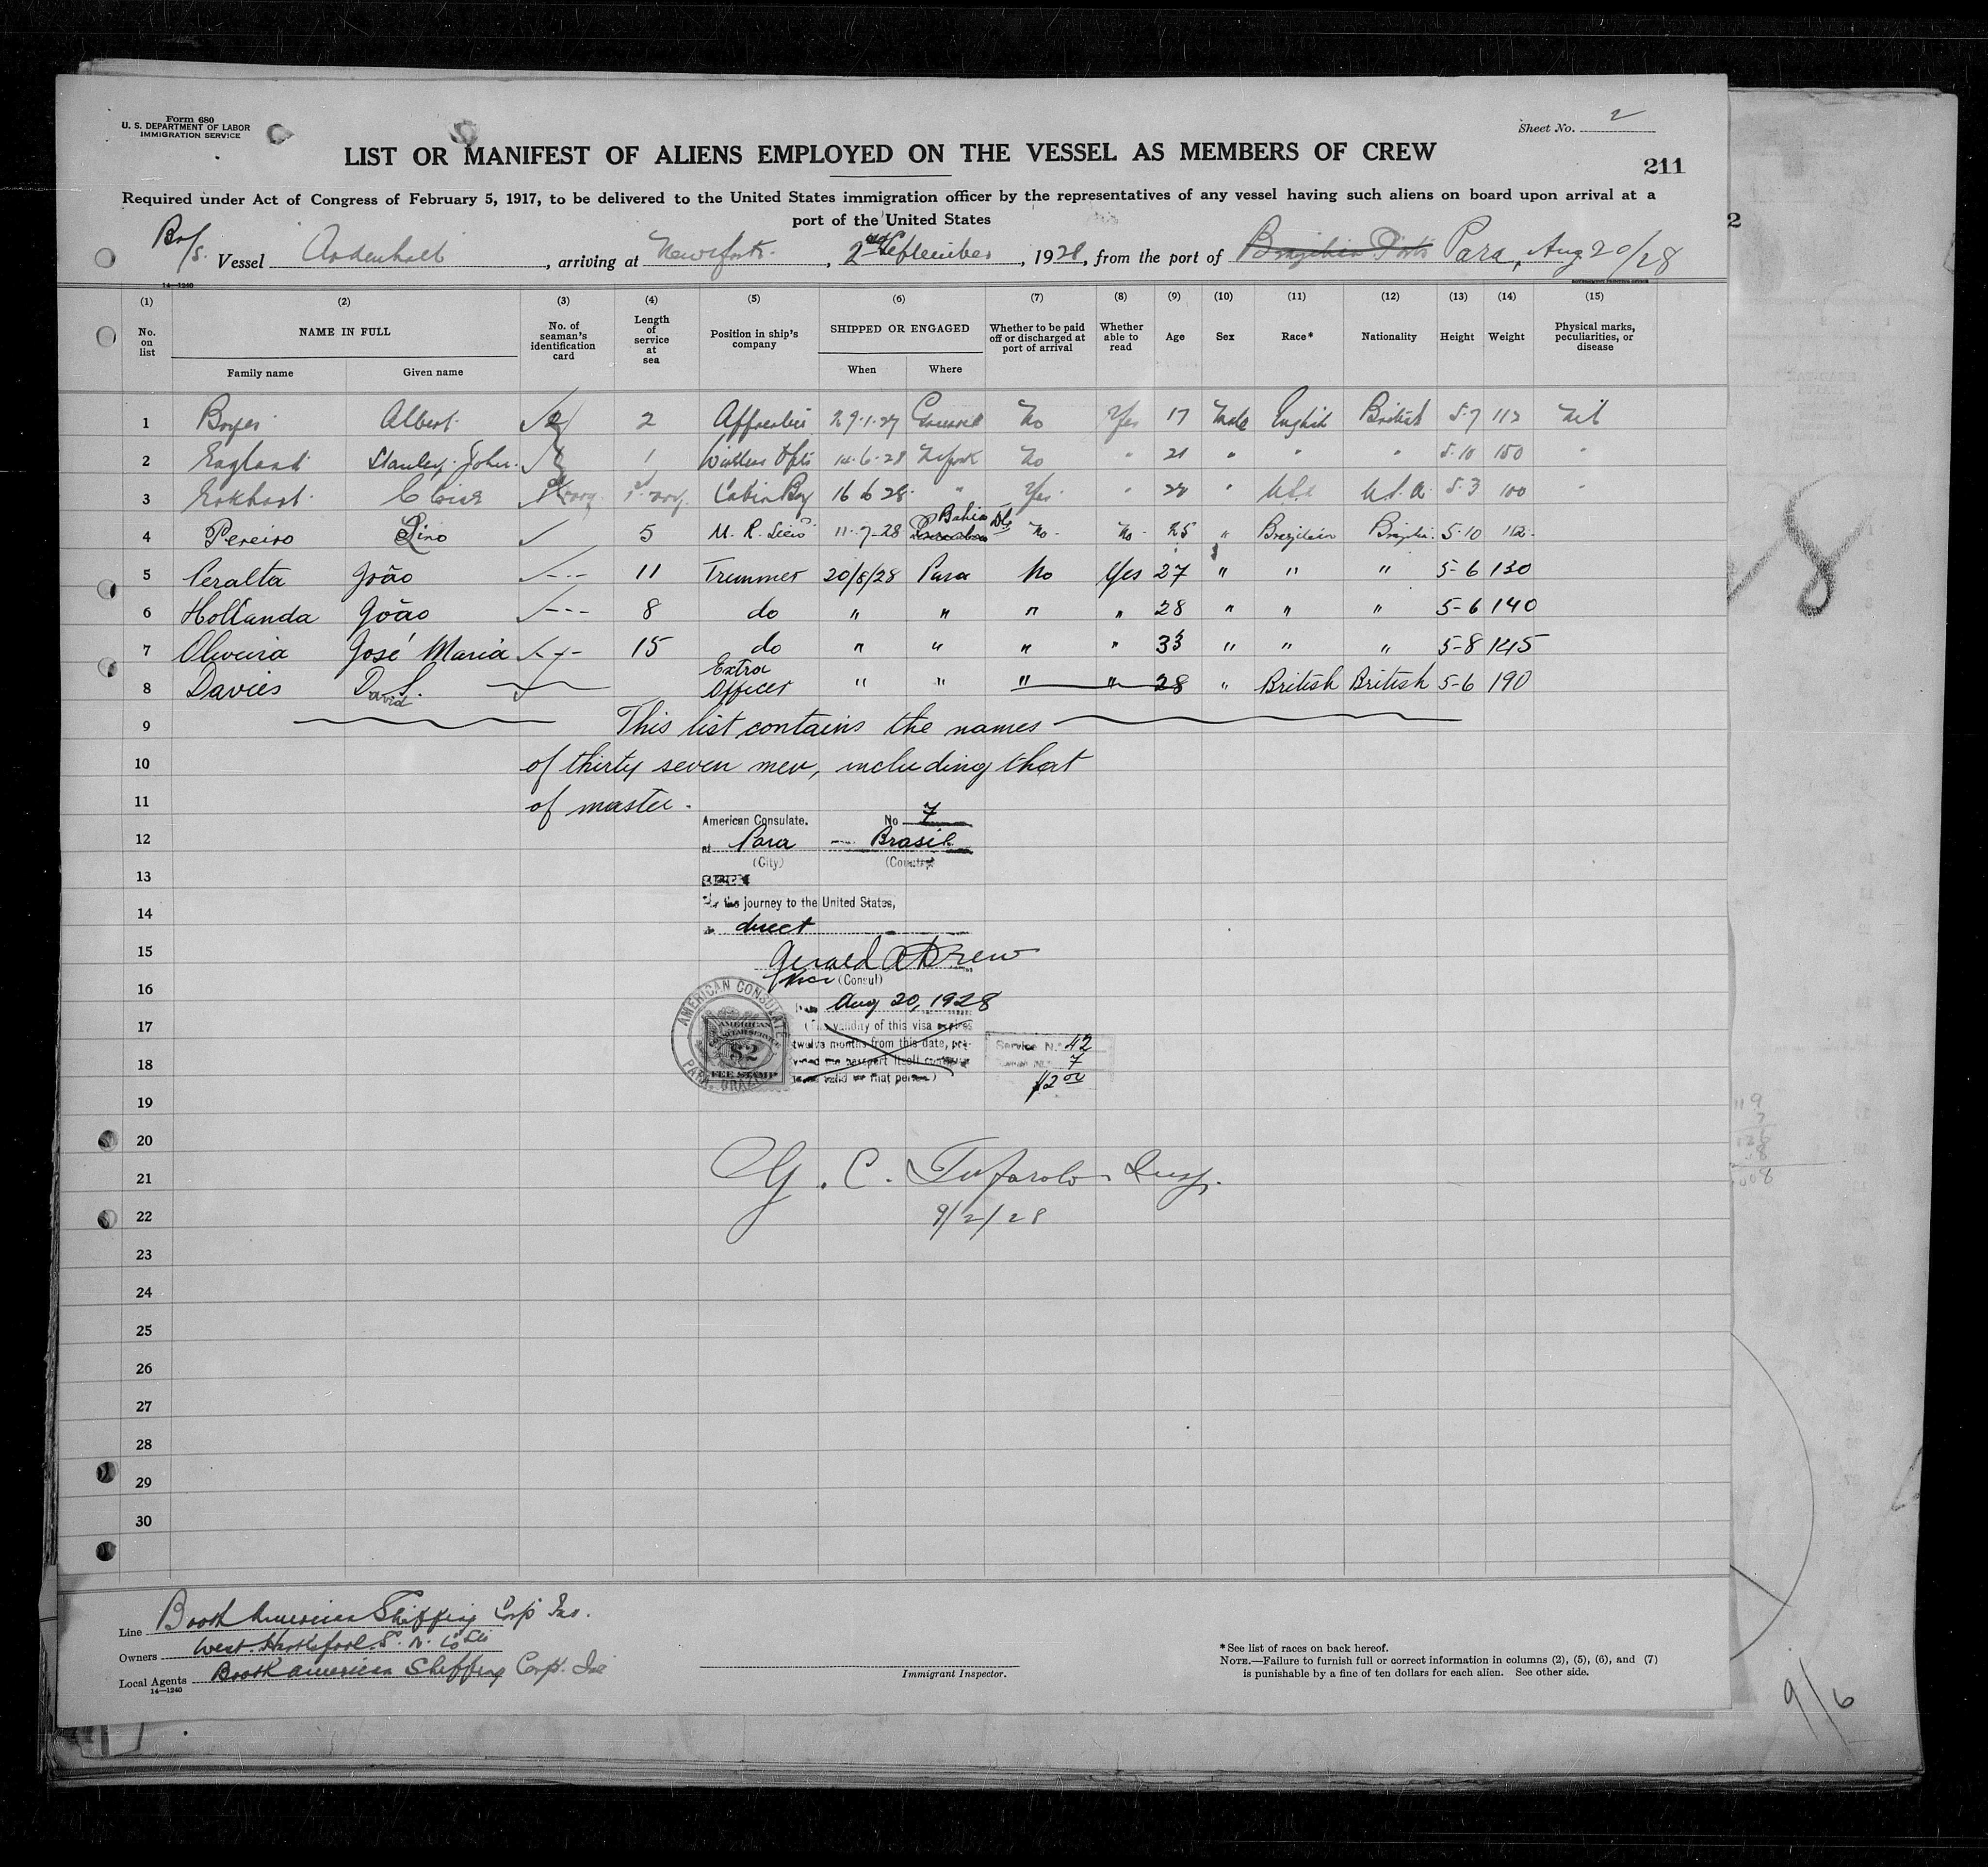 Form 680
U. S. DEPARTMENT OF LABOR
IMMIGRATION SERVICE
Sheet No. 2
LIST OR MANIFEST OF ALIENS EMPLOYED ON THE VESSEL AS MEMBERS OF CREW
211
Required under Act of Congress of February 5, 1917, to be delivered to the United States immigration officer by the representatives of any vessel having such aliens on board upon arrival at a
port of the United States
Br/S. Vessel Ardenhall, arriving at New York, 2nd September, 1928, from the port of Brazilian Ports Para, Aug 20/28
14—1240
(1) (2) (3) (4) (5) (6) (7) (8) (9) (10) (11) (12) (13) (14) (15)
No. on list NAME IN FULL No. of seaman's identification card Length of service at sea Position in ship's company SHIPPED OR ENGAGED Whether to be paid off or discharged at port of arrival Whether able to read Age Sex Race* Nationality Height Weight Physical marks, peculiarities, or disease
Family name Given name When Where
1 Albert 2 29.1.27 No Yes 17 Male English British 5.7 112 Nil
2 England Stanley John 1 14.6.28 No " 21 " " " 5.10 150 "
3 Cabin Boy 16 6 28 " Yes " 20 " U.S.A. 5.3 100 "
4 Pereiro Lino 5 11-7-28 Bahia No No 25 " Brazilian 5.10 112
5 Peralta João 11 Trimmer 20/8/28 Para No Yes 27 " " " 5-6 130
6 Hollanda João 8 do " " " " 28 " " " 5-6 140
7 Oliveira José Maria 15 do " " " " 33 " " " 5-8 145
8 Davies D. S. David Extra Officer " " " " 28 " British British 5-6 190
9 This list contains the names
10 of thirty seven men, including that
11 of master.
American Consulate. No 7
12 at Para Brasil
(City) (Country)
13
14 journey to the United States,
direct
15 Gerald A Drew
16 Vice (Consul)
Aug 20, 1928
AMERICAN CONSULATE
PARA, BRAZIL
AMERICAN CONSULAR SERVICE
$2
FEE STAMP
17 validity of this visa expires
twelve months from this date, pro-
18 vided the passport itself continues
valid for that period.)
Service No. 42
7
$2 00
19
20
21 G. C. Tufarolo Insp.
22 9/2/28
23
24
25
26
27
28
29
30
Line Booth American Shipping Corp Inc.
Owners West Hartlepool S. N. Co Ltd
Local Agents Booth American Shipping Corp. Inc
14—1240
Immigrant Inspector.
*See list of races on back hereof.
NOTE.—Failure to furnish full or correct information in columns (2), (5), (6), and (7)
is punishable by a fine of ten dollars for each alien. See other side.
2
8
9/6